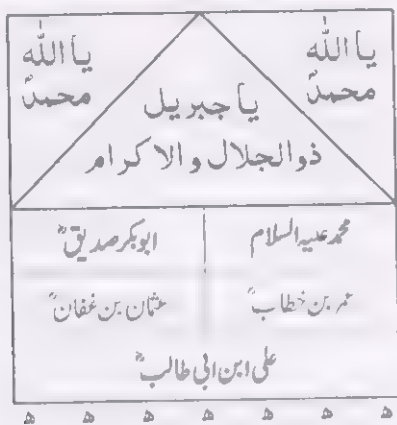 یا اللہ
محمدؐ
یا اللہ
محمدؐ
یا جبریل
ذوالجلال والاکرام
محمد علیہ السلام
ابوبکر صدیقؓ
عمر بن خطابؓ
عثمان بن غفانؓ
علی ابن ابی طالبؓ
ھ ھ ھ ھ ھ ھ ھ